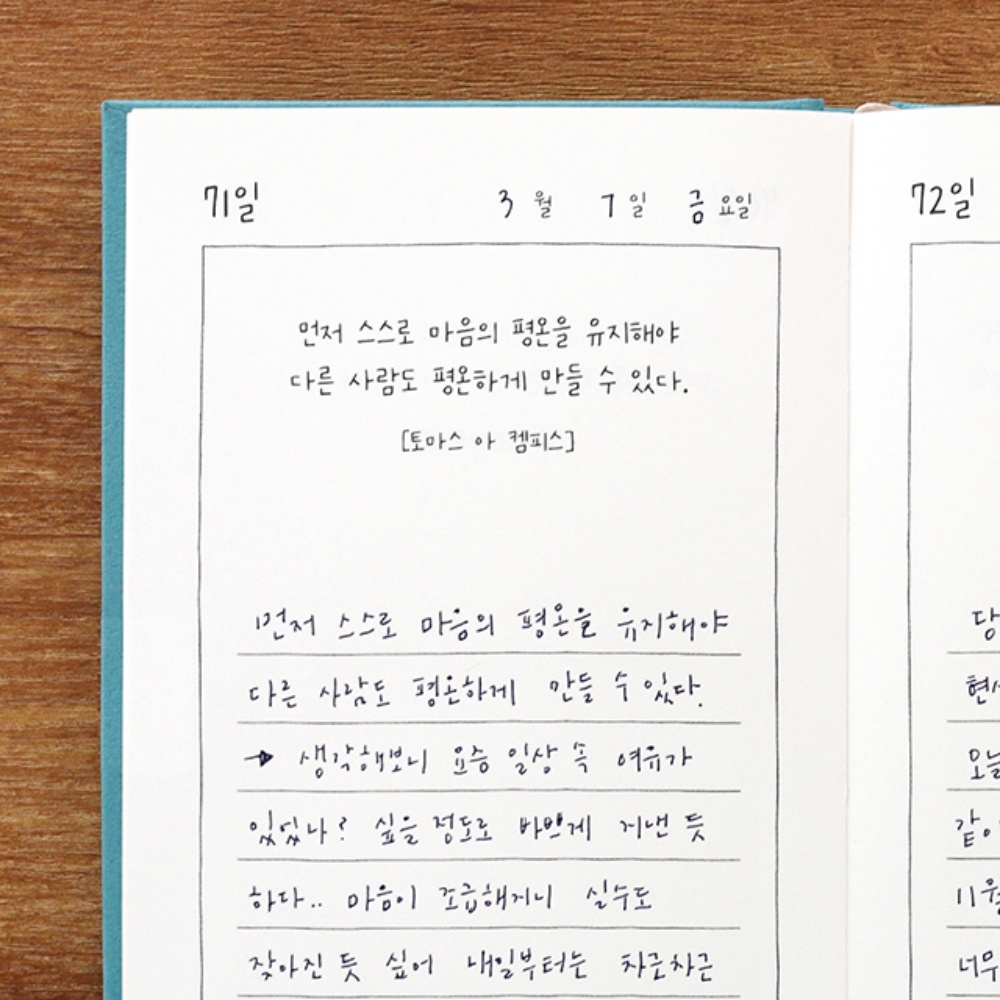 71일
3 월 7 일 금 요일
먼저 스스로 마음의 평온을 유지해야
다른 사람도 평온하게 만들 수 있다.
[토마스 아 켐피스]
먼저 스스로 마음의 평온을 유지해야
다른 사람도 평온하게 만들 수 있다.
→ 생각해보니 요즘 일상 속 여유가
있었나? 싶을 정도로 바쁘게 지낸 듯
하다.. 마음이 조급해지니 실수도
잦아진 듯 싶어 내일부터는 차근차근
72일
당
오늘
같이
11월
너무